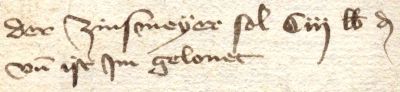 der Zinsmeyer sol Ciij lb d
vn̄ ist Jm gelonet